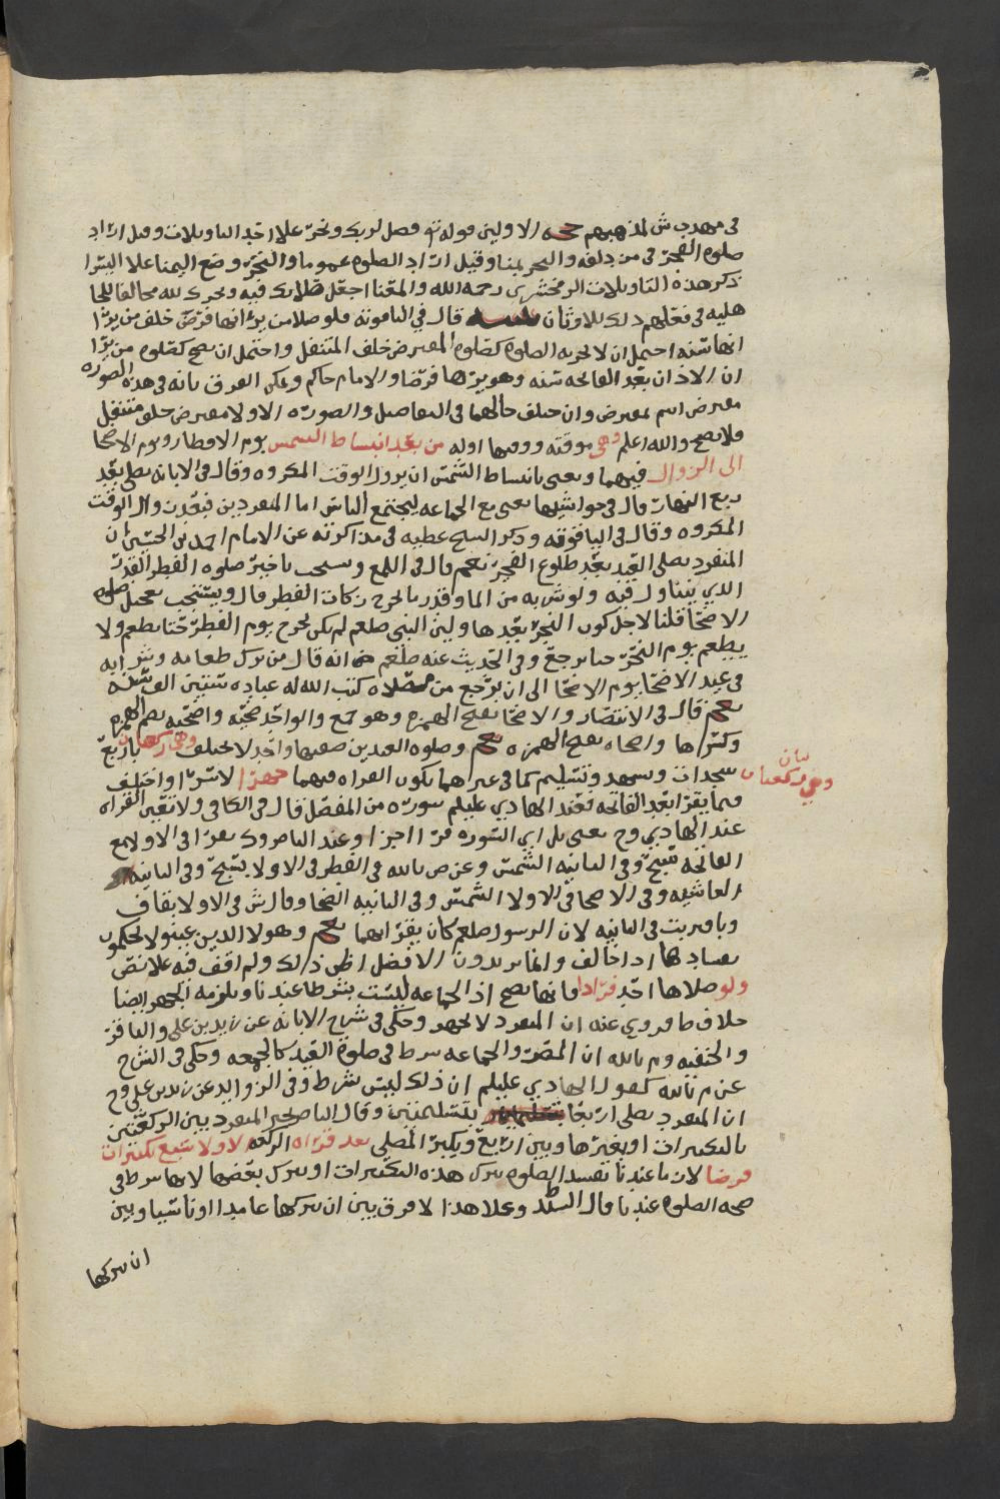 في مهدب ش لمذهبهم حجه الاولين قوله تع فصل لربك ونحر علا احد التاويلات وقيل اراد
صلوه الفجر في مزدلفه والنحر بمنا وقيل اراد الصلوه عموما والنحر وضع اليمنا علا اليسرا
ذكر هذه التاويلات الزمخشري رحمه الله والمعنا اجعل صلاتك فيه ونحرك لله مخالفا للجا
هليه في فعلهم ذلك للاوثان قال في الياقوته فلو صلا من يرا انها فرض خلف من يرا
انها سنه احتمل ان لا تجزيه الصلوه كصلوه المفترض خلف المتنفل واحتمل ان تصح كصلوه من يرا
ان الاذان بعد الفاتحه سنه وهو يراها فرضا والامام حاكم ويمكن الفرق بانه في هذه الصوره
مفترض ايتم بمفترض وان اختلف حالهما في التفاصيل والصوره الاولا مفترض خلف متنفل
ولا تصح والله اعلم وهي موقته ووقتها اوله من بعد انبساط الشمس يوم الافطار ويوم الاضحا
الى الزوال فيهما ويعني بانبساط الشمس ان يزول الوقت المكروه وقال في الابانه يصلي بعد
ربع النهار قال في حواشيها يعني مع الجماعه ليجتمع الناس اما المنفردين فبعد زوال الوقت
المكروه وقال في الياقوته وذكر الشيخ عطيه في مذاكرته عن الامام احمد بن الحسين ان
المنفرد يصلي العيد بعد طلوع الفجر نعم قال في اللمع ويستحب تاخير صلوه الفطر القدر
الذي يتناول فيه ولو شربه من الما وقدر ما تخرج زكات الفطر قال ويستحب تعجيل صلوه
الاضحا قلنا لاجل كون النحر بعدها ولان النبي صلعم لم يكن يخرج يوم الفطر حتا يطعم ولا
يطعم يوم النحر حتا يرجع وفي الحديث عنه صلعم انه قال من ترك طعامه وشرابه
في عيد الاضحا يوم الاضحا الى ان يرجع من مصلاه كتب الله له عباده ستين الف سنه
نعم قال في الانتصار والاضحا بفتح الهمزه وهو جمع والواحد ضحيه واضحيه بضم الهمزه
وكسرها واضحاه بفتح الهمزه نعم وصلوه العيدين صفتها واحد لا تختلف وهي ركعتان باربع
سجدات وتشهد وتسليم كما في غيرهما تكون القراه فيهما جهرا لا سرا واختلف
وهي ركعتان بيان
فيما يقرا بعد الفاتحه فعند الهادي عليلم سوره من المفصل قال في الكافي ولا تتعين القراه
عند الهادي وح يعني بل اي السوره قرا اجزا وعند الناصر وك يقرا في الاولا مع
الفاتحه سبح وفي الثانيه الشمس وعن ص بالله في الفطر في الاولا بسبح وفي الثانيه
الغاشيه وفي الاضحا في الاولا الشمس وفي الثانيه الضحا وقال ش في الاولا بقاف
وباقتربت في الثانيه لان الرسول صلعم كان يقرا بهما نعم وهولا الذين عينوا لا يحكمون
بفسادها اذا خالف وانما يريدون الافضل اظن ذلك ولم اقف فيه علا نص
ولو صلاها احد فرادا فانها تصح اذ الجماعه ليست بشرط عندنا ويلزمه الجهر ايضا
خلاف ما روي عنه ان المنفرد لا يجهر وحكى في شرح الابانه عن زيد بن علي والباقر
والحنفيه وم بالله ان المصر والجماعه شرط في صلوة العيد كالجمعه وحكى في الشرح
عن م بالله كقول الهادي عليلم ان ذلك ليس بشرط وفي الزوايد عن زيد بن علي وح
ان المنفرد يصلي اربعا بتسليمتين وقال الناصر يخير المنفرد بين الركعتين
بالتكبيرات او بغيرها وبين اربع ويكبر المصلي بعد قراه الركعه الاولا سبع تكبيرات
فرضا لان عندنا تفسد الصلوه بترك هذه التكبيرات او بترك بعضها لانها شرط في
صحه الصلوه عندنا قال السيد وعلا هذا لا فرق بين ان يتركها عامدا او ناسيا وبين
ان يتركها